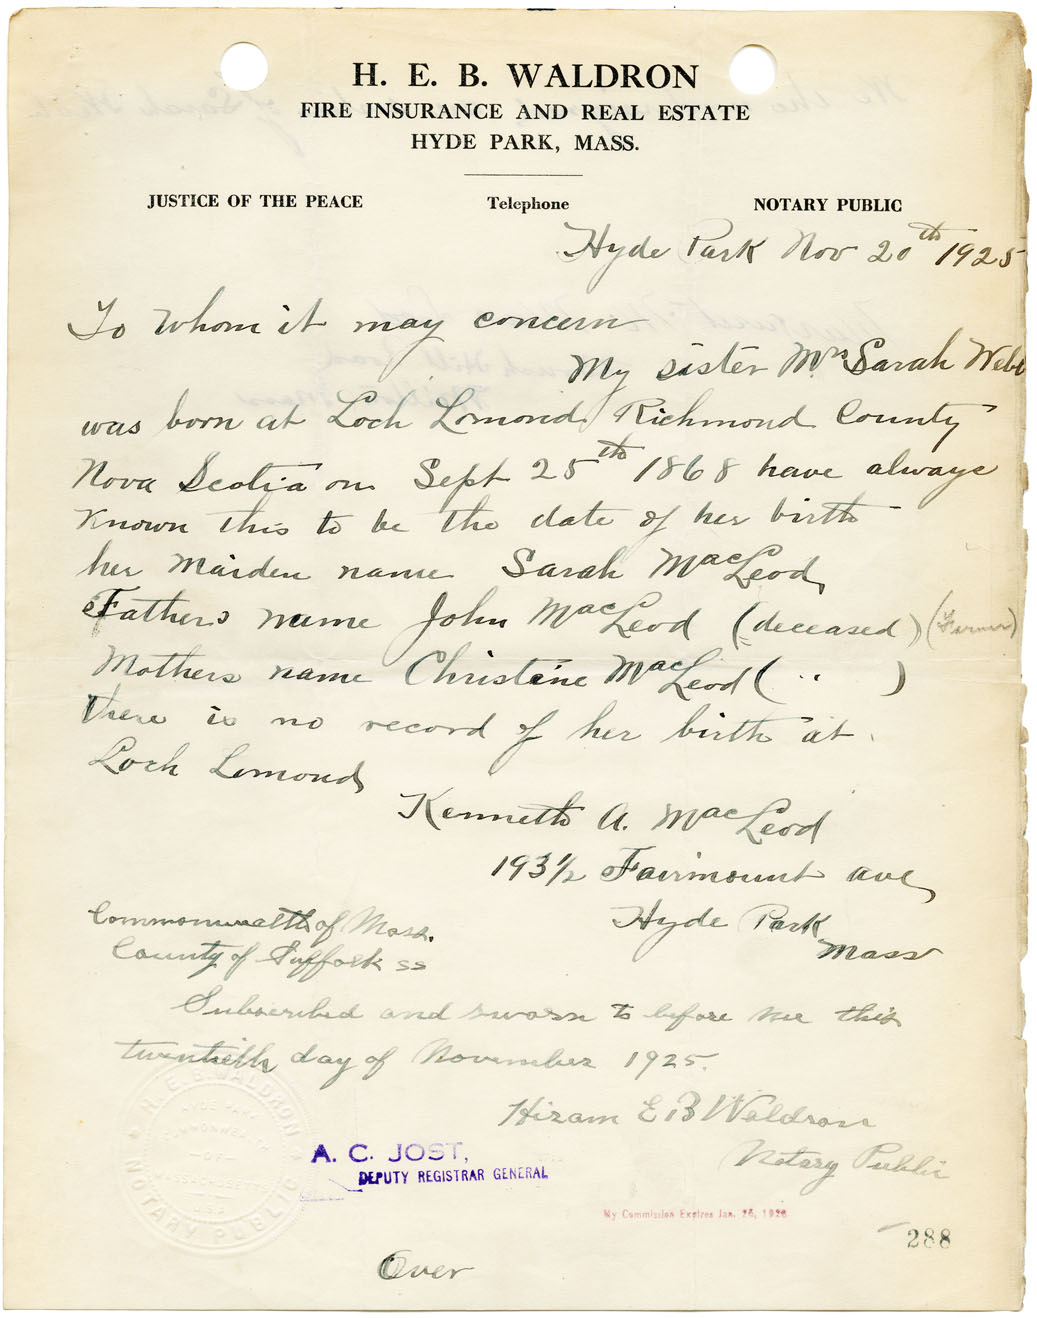 H. E. B. WALDRON
FIRE INSURANCE AND REAL ESTATE
HYDE PARK, MASS.
JUSTICE OF THE PEACE Telephone NOTARY PUBLIC
Hyde Park Nov 20th 1925
To Whom it may concern
My sister Mrs Sarah Webb
was born at Loch Lomond, Richmond County
Nova Scotia on Sept 25th 1868 have always
Known this to be the date of her birth
her Maiden name Sarah MacLeod,
Fathers name John MacLeod (deceased) (Farmer)
Mothers name Christine MacLeod ( " )
there is no record of her birth at
Loch Lomond,
Kenneth A. MacLeod
193 1/2 Fairmount ave,
Hyde Park
Mass
Commonwealth of Mass.
County of Suffolk ss
Subscribed and sworn to before me this
twentieth day of November 1925.
Hiram E B Waldron
Notary Public
H. E. B. WALDRON
HYDE PARK
COMMONWEALTH
OF
U.S.A
NOTARY PUBLIC
A. C. JOST,
DEPUTY REGISTRAR GENERAL
My Commission Expires Jan. 26, 1928
288
Over